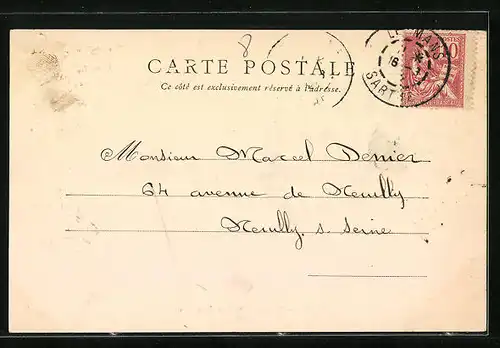 8
CARTE POSTALE
Ce côté est exclusivement réservé à l'adresse.
LE MANS
16
SARTHE
POSTES
10
Monsieur Marcel Denier
64 avenue de Neuilly
Neuilly s. Seine